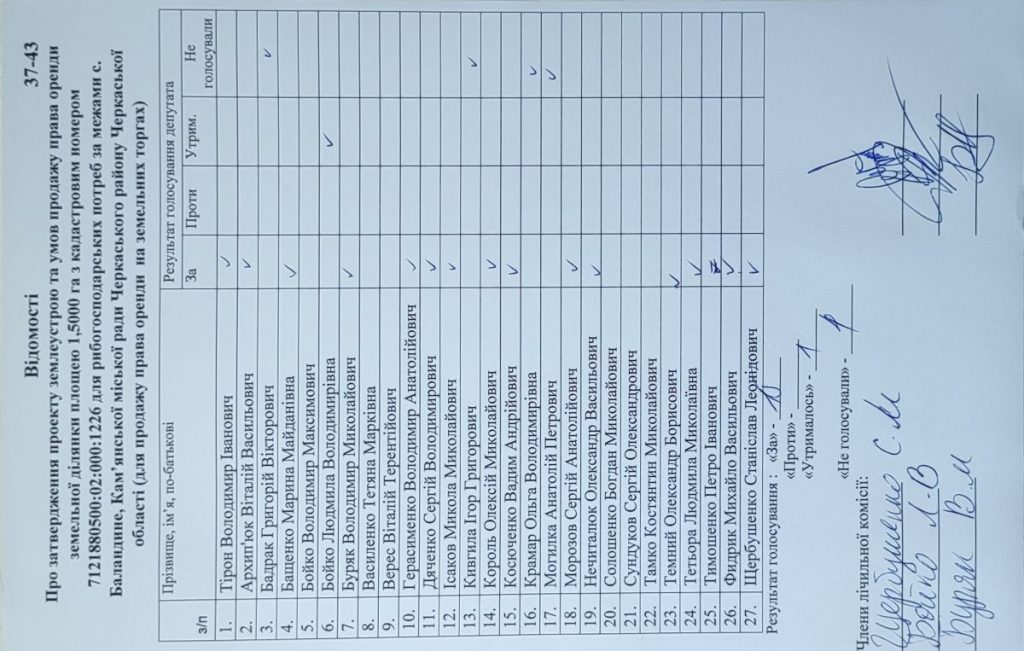 Відомості 37-43
Про затвердження проекту землеустрою та умов продажу права оренди
земельної ділянки площею 1,5000 га з кадастровим номером
7121880500:02:000:1226 для рибогосподарських потреб за межами с.
Баландине, Кам’янської міської ради Черкаського району Черкаської
області (для продажу права оренди на земельних торгах)
з/п Прізвище, ім’я, по-батькові Результат голосування депутата
За Проти Утрим. Не голосували
1. Тірон Володимир Іванович ✓
2. Архип'юк Віталій Васильович ✓
3. Бадрак Григорій Вікторович ✓
4. Бащенко Марина Майданівна ✓
5. Бойко Володимир Максимович
6. Бойко Людмила Володимирівна ✓
7. Буряк Володимир Миколайович ✓
8. Василенко Тетяна Марківна
9. Верес Віталій Терентійович
10. Герасименко Володимир Анатолійович ✓
11. Дяченко Сергій Володимирович ✓
12. Ісаков Микола Миколайович ✓
13. Кивгила Ігор Григорович ✓
14. Король Олексій Миколайович ✓
15. Косюченко Вадим Андрійович ✓
16. Крамар Ольга Володимирівна ✓
17. Могилка Анатолій Петрович ✓
18. Морозов Сергій Анатолійович ✓
19. Нечиталюк Олександр Васильович ✓
20. Солошенко Богдан Миколайович
21. Сундуков Сергій Олександрович
22. Тамко Костянтин Миколайович
23. Темний Олександр Борисович ✓
24. Тетьора Людмила Миколаївна ✓
25. Тимошенко Петро Іванович
26. Фидрик Михайло Васильович ✓
27. Щербушенко Станіслав Леонідович ✓
Результат голосування : «За» -
«Проти» -
«Утрималось» - 1
«Не голосували» -
Члени лічильної комісії:
Щербушенко С.
Бойко Л.В
Буряк В.М